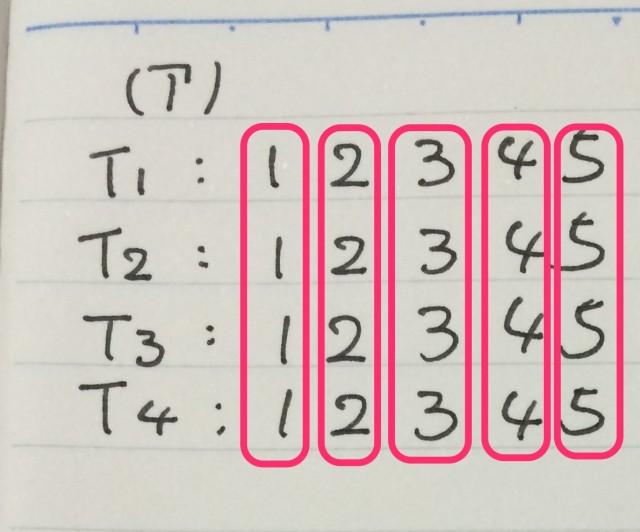 (丅)
T1 : 1 2 3 4 5
T2 : 1 2 3 4 5
T3 : 1 2 3 4 5
T4 : 1 2 3 4 5